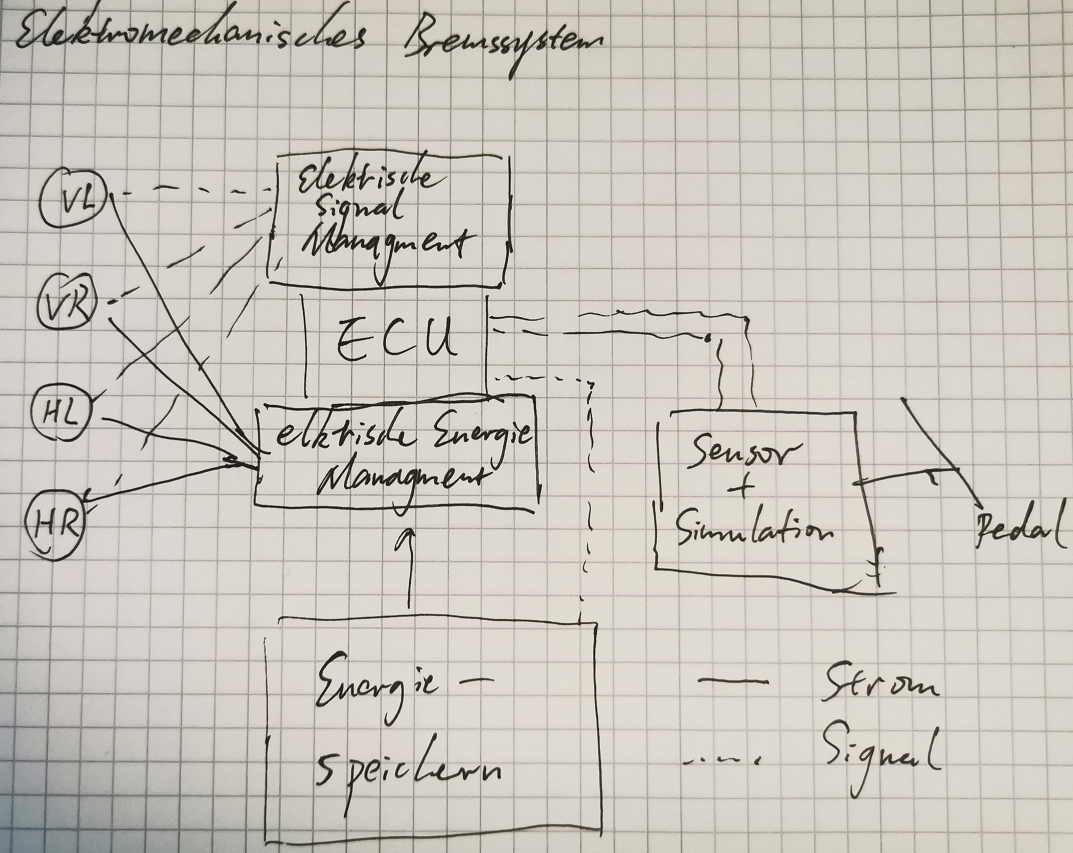 Elektromechanisches Bremssystem
VL
VR
HL
HR
Elektrische
Signal
Managment
ECU
elktrische Energie
Managment
Sensor
+
Simulation
Pedal
Energie -
speichern
Strom
Signal